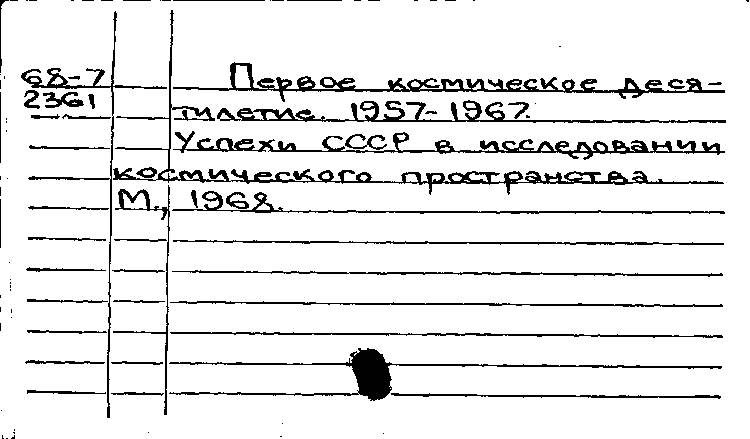 68-7 Первое космическое деся-
2361 тилетие. 1957-1967.
Успехи СССР в исследовании
космического пространства.
М., 1968.